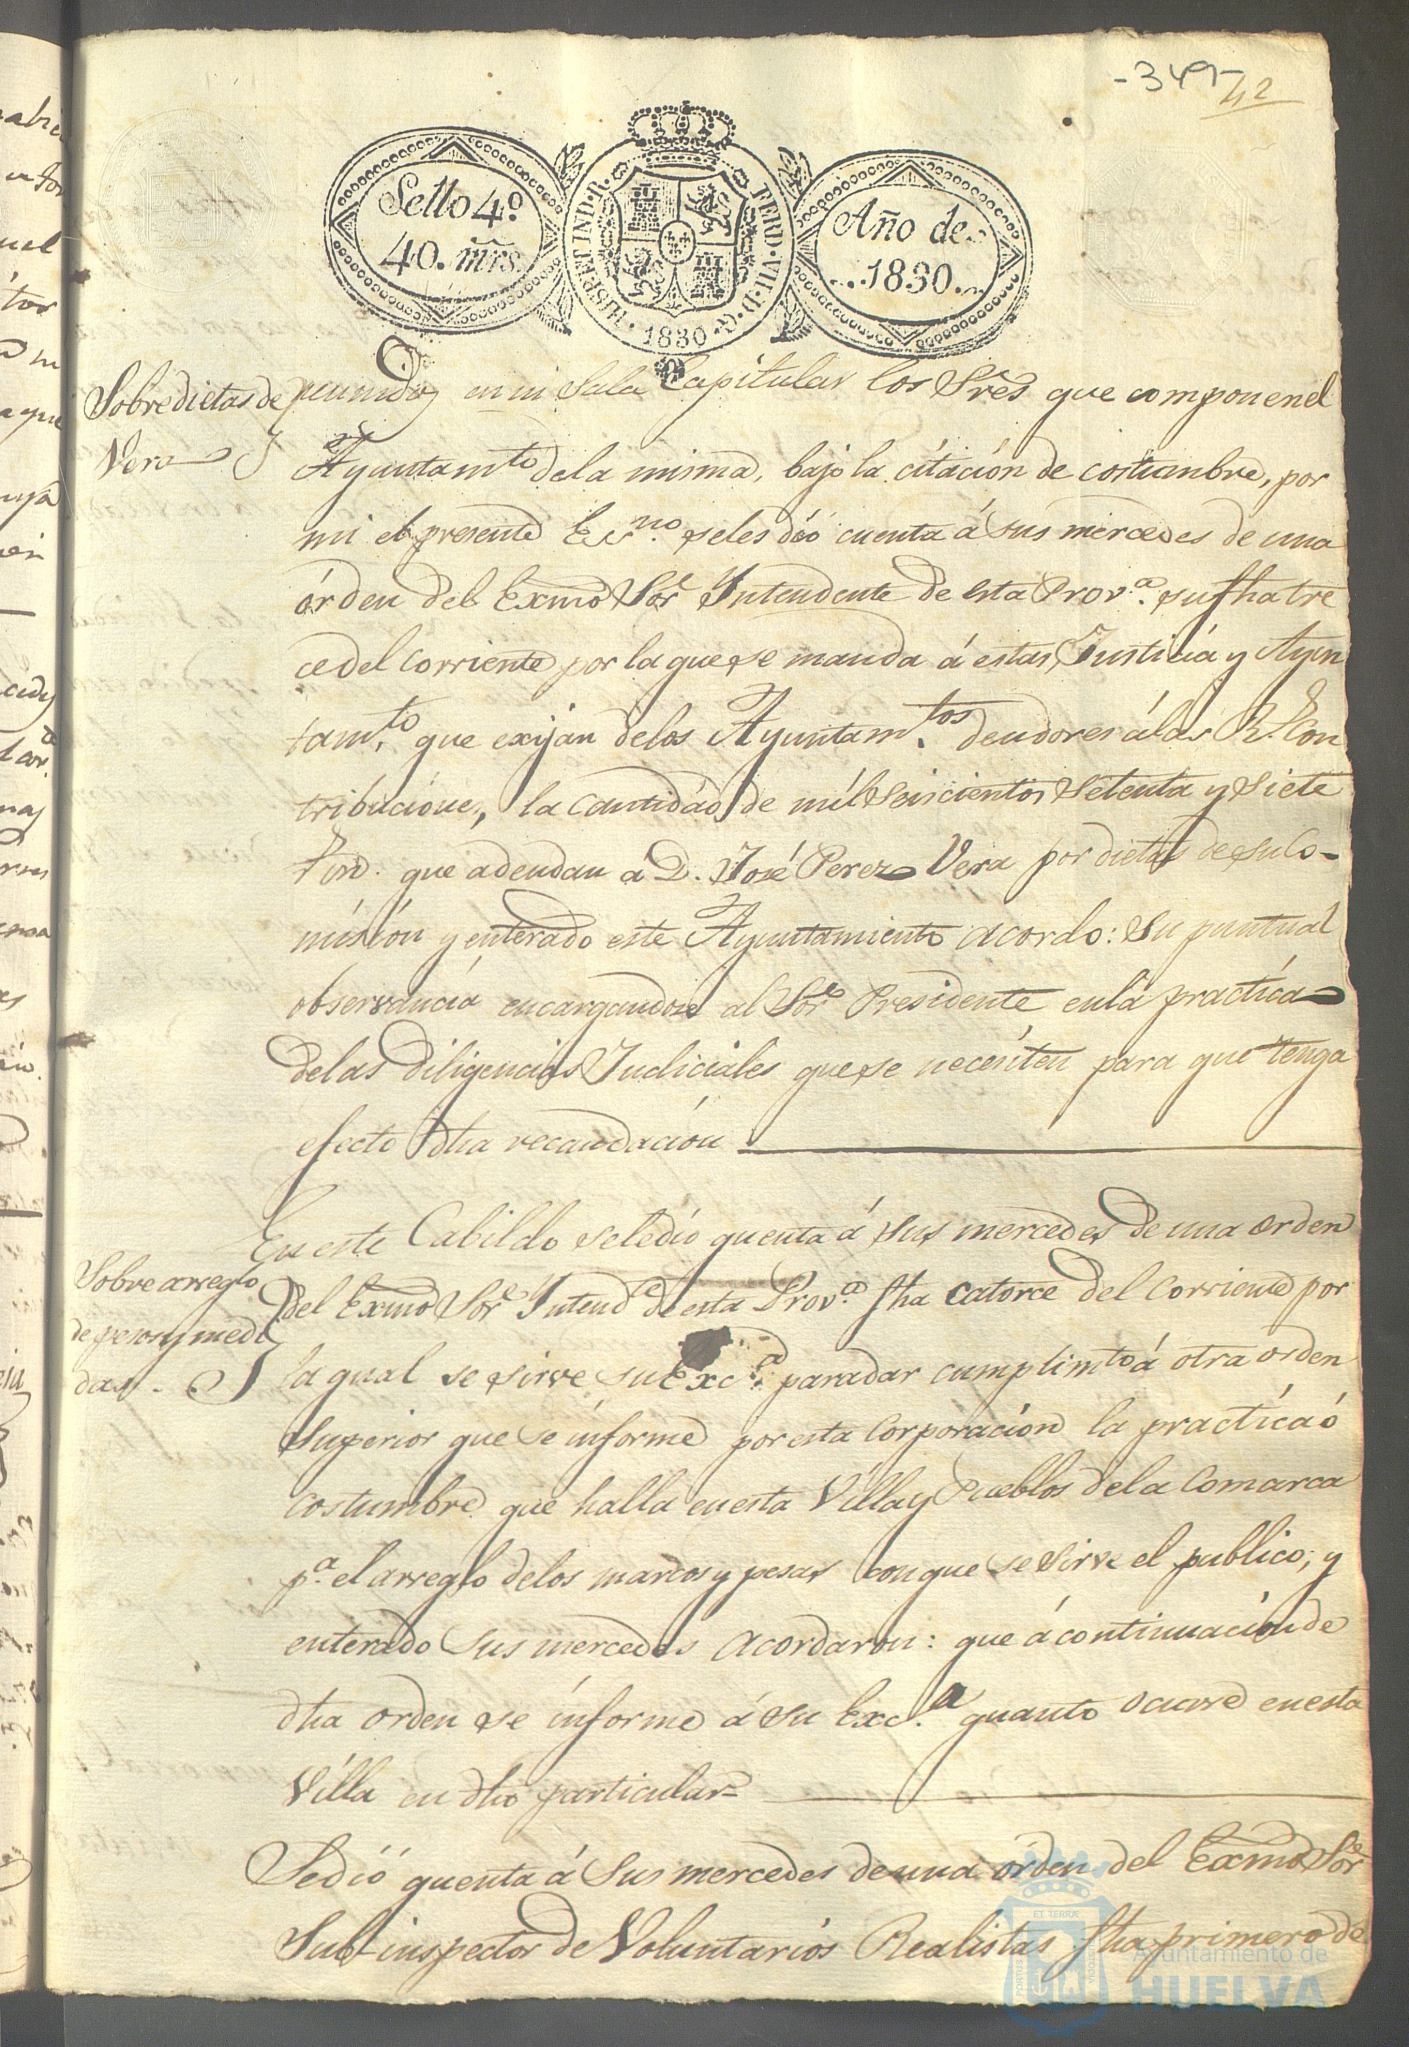 -349- 42
Sello 4º
40. mrs.
HISP. ET IND. R. FERD. VII. D. G.
1830
Año de
1830.
Sobre dietas de
Vera
reunidos en su Sala Capitular los Sres que componen el
Ayuntamto de la misma, bajo la citación de costumbre, por
mi el presente Escno. se les dió cuenta á sus mercedes de una
órden del Exmo Sor Intendente de esta Prova. su fha tre
ce del corriente por la que se manda á estas Justicia y Ayun
tamto. que exijan delos Ayuntamtos. deudores á las Rs. Con
tribucione, la cantidad de mil seiscientos setenta y siete
rvn. que adeudan á D. José Perez Vera por dietas de su Co-
misión y enterado este Ayuntamiento acordo: su puntual
observancia encargandose al Sor Presidente en la practica
delas diligencias Judiciales que se necesiten para que tenga
efecto dha recaudación
Sobre arreglo
de pesos y medi
das.
En este Cabildo se le dió quenta á sus mercedes de una orden
del Exmo Sor Intende de esta Prova. fha catorce del corriente por
la qual se sirve su Exca. para dar cumplimto á otra orden
superior que se informe por esta Corporación la practica ó
costumbre que halla en esta Villa y Pueblos de la Comarca
pa. el arreglo delos marcos y pesas con que se sirve el publico; y
enterado sus mercedes acordaron: que á continuación de
dha orden se informe á su Exca. quanto ocurre en esta
Villa en dho particular
Se dió quenta á sus mercedes de una órden del Exmo Sor
Sub-inspector de Voluntarios Realistas fha primero de
Ayuntamiento de
HUELVA